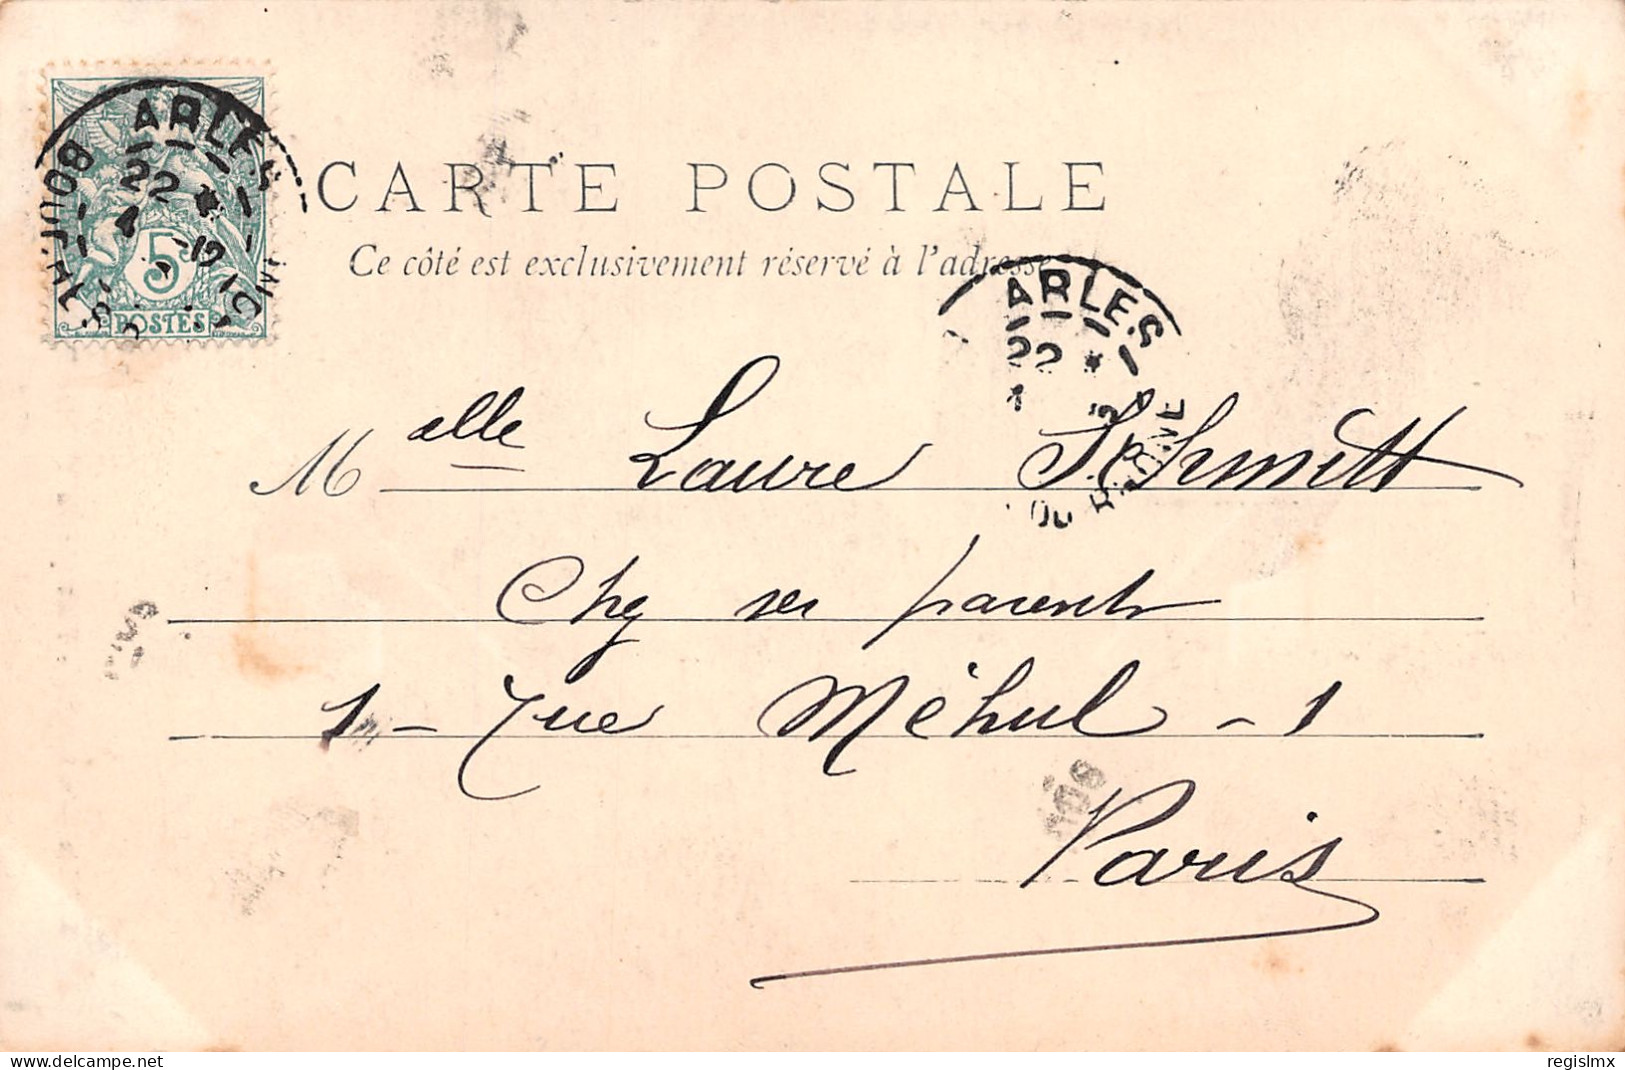 ARLES
22 *
4
5c
POSTES
CARTE POSTALE
Ce côté est exclusivement réservé à l'adresse
ARLES
22 *
DU RHONE
Melle Laure Schmitt
Chg ses parents
1 - rue Méhul - 1
Paris
BOU
www.delcampe.net
regislmx